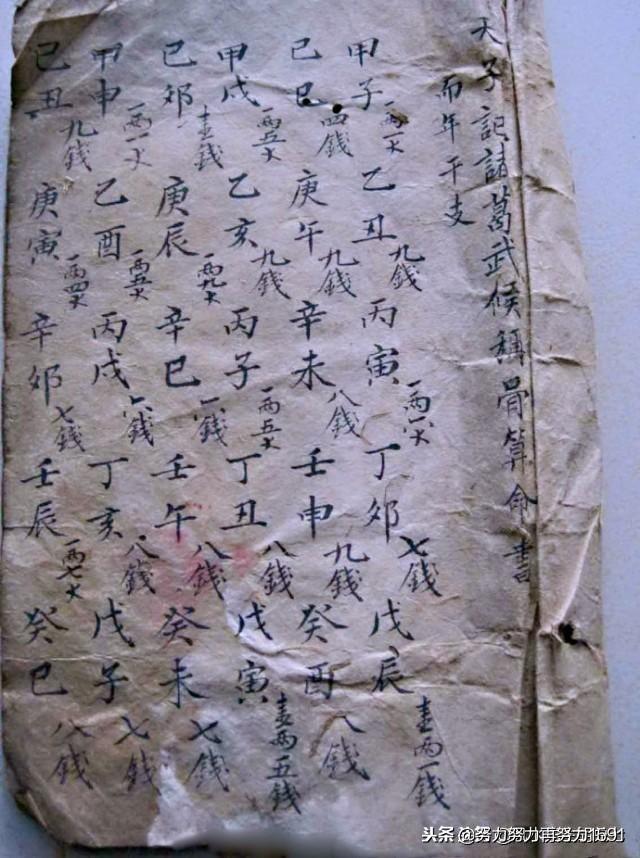 天子記諸葛武候稱骨算命書
而年干支
甲子 一两一 乙丑 九錢 丙寅 一两 丁卯 七錢 戊辰 壹两一錢
己巳 四錢 庚午 九錢 辛未 八錢 壬申 九錢 癸酉 八錢
甲戌 一两五 乙亥 九錢 丙子 一两五 丁丑 八錢 戊寅 壹两五錢
己卯 壹錢 庚辰 一两九 辛巳 錢 壬午 八錢 癸未 七錢
甲申 一两一 乙酉 一两五 丙戌 錢 丁亥 八錢 戊子 七錢
己丑 九錢 庚寅 一两四 辛卯 七錢 壬辰 一两七 癸巳 八錢
头条 @努力努力再努力1591